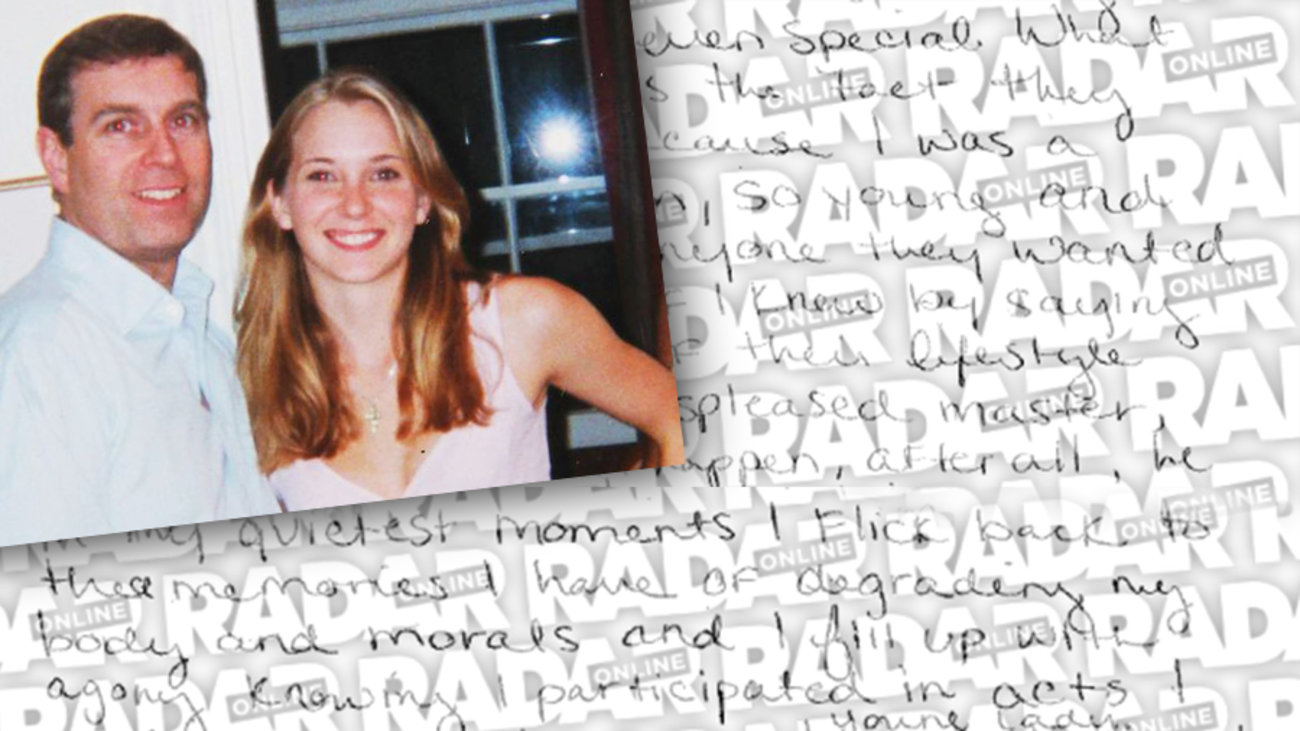 even special. What
s the fact they
cause I was a
n, so young and
nyone they wanted
I knew by saying
their lifestyle
spleased master,
appen, after all, he
my quietest moments I Flick back to
these memories I have of degrading my
body and morals and I fill up with
agony knowing I participated in acts I
young lady
RADAR ONLINE